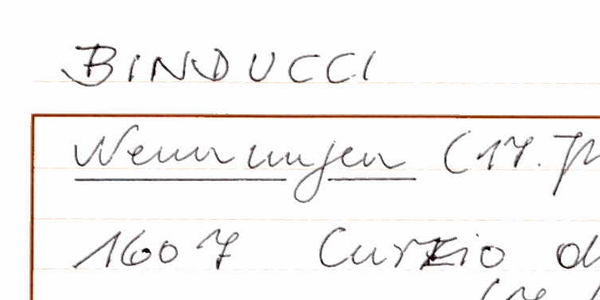 BINDUCCI
Nennungen (17. J
1607 Curzio d